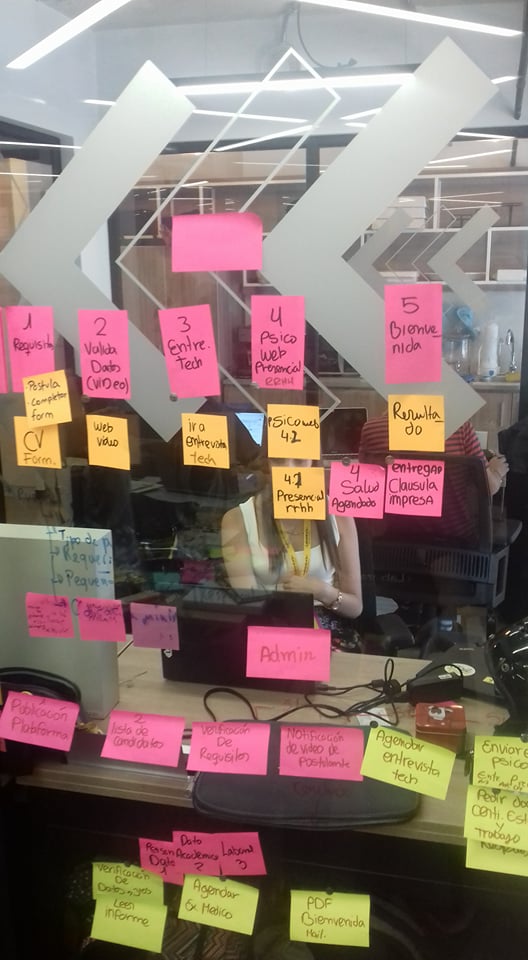 1
Requisito
2
Valida
Datos
(video)
3
Entre.
Tech
4
Psico
Web
Presencial
RRHH
5
Bienve-
nida
Postula-
completar
form
CV
Form.
Web
video
ira
entrevista
tech
Psicoweb
4.2
4.1
Presencial
rrhh
4
Salud
Agendado
Resulta-
do
entregar
Clausula
impresa
Tipo de
Requeri
Pequeñ
Admin
Publicación
Plataforma
2
lista de
candidatos
Verificación
De
Requisitos
Notificación
de video de
Postulante
Agendar
entrevista
tech
Enviar
psico
Pedir do
Centi. Est
y
trabajo
Person
Dato
1
Dato
Academico
2
Laboral
3
Verificación
De
Leer
informe
Agendar
Ex. Medico
PDF
Bienvenida
Mail.